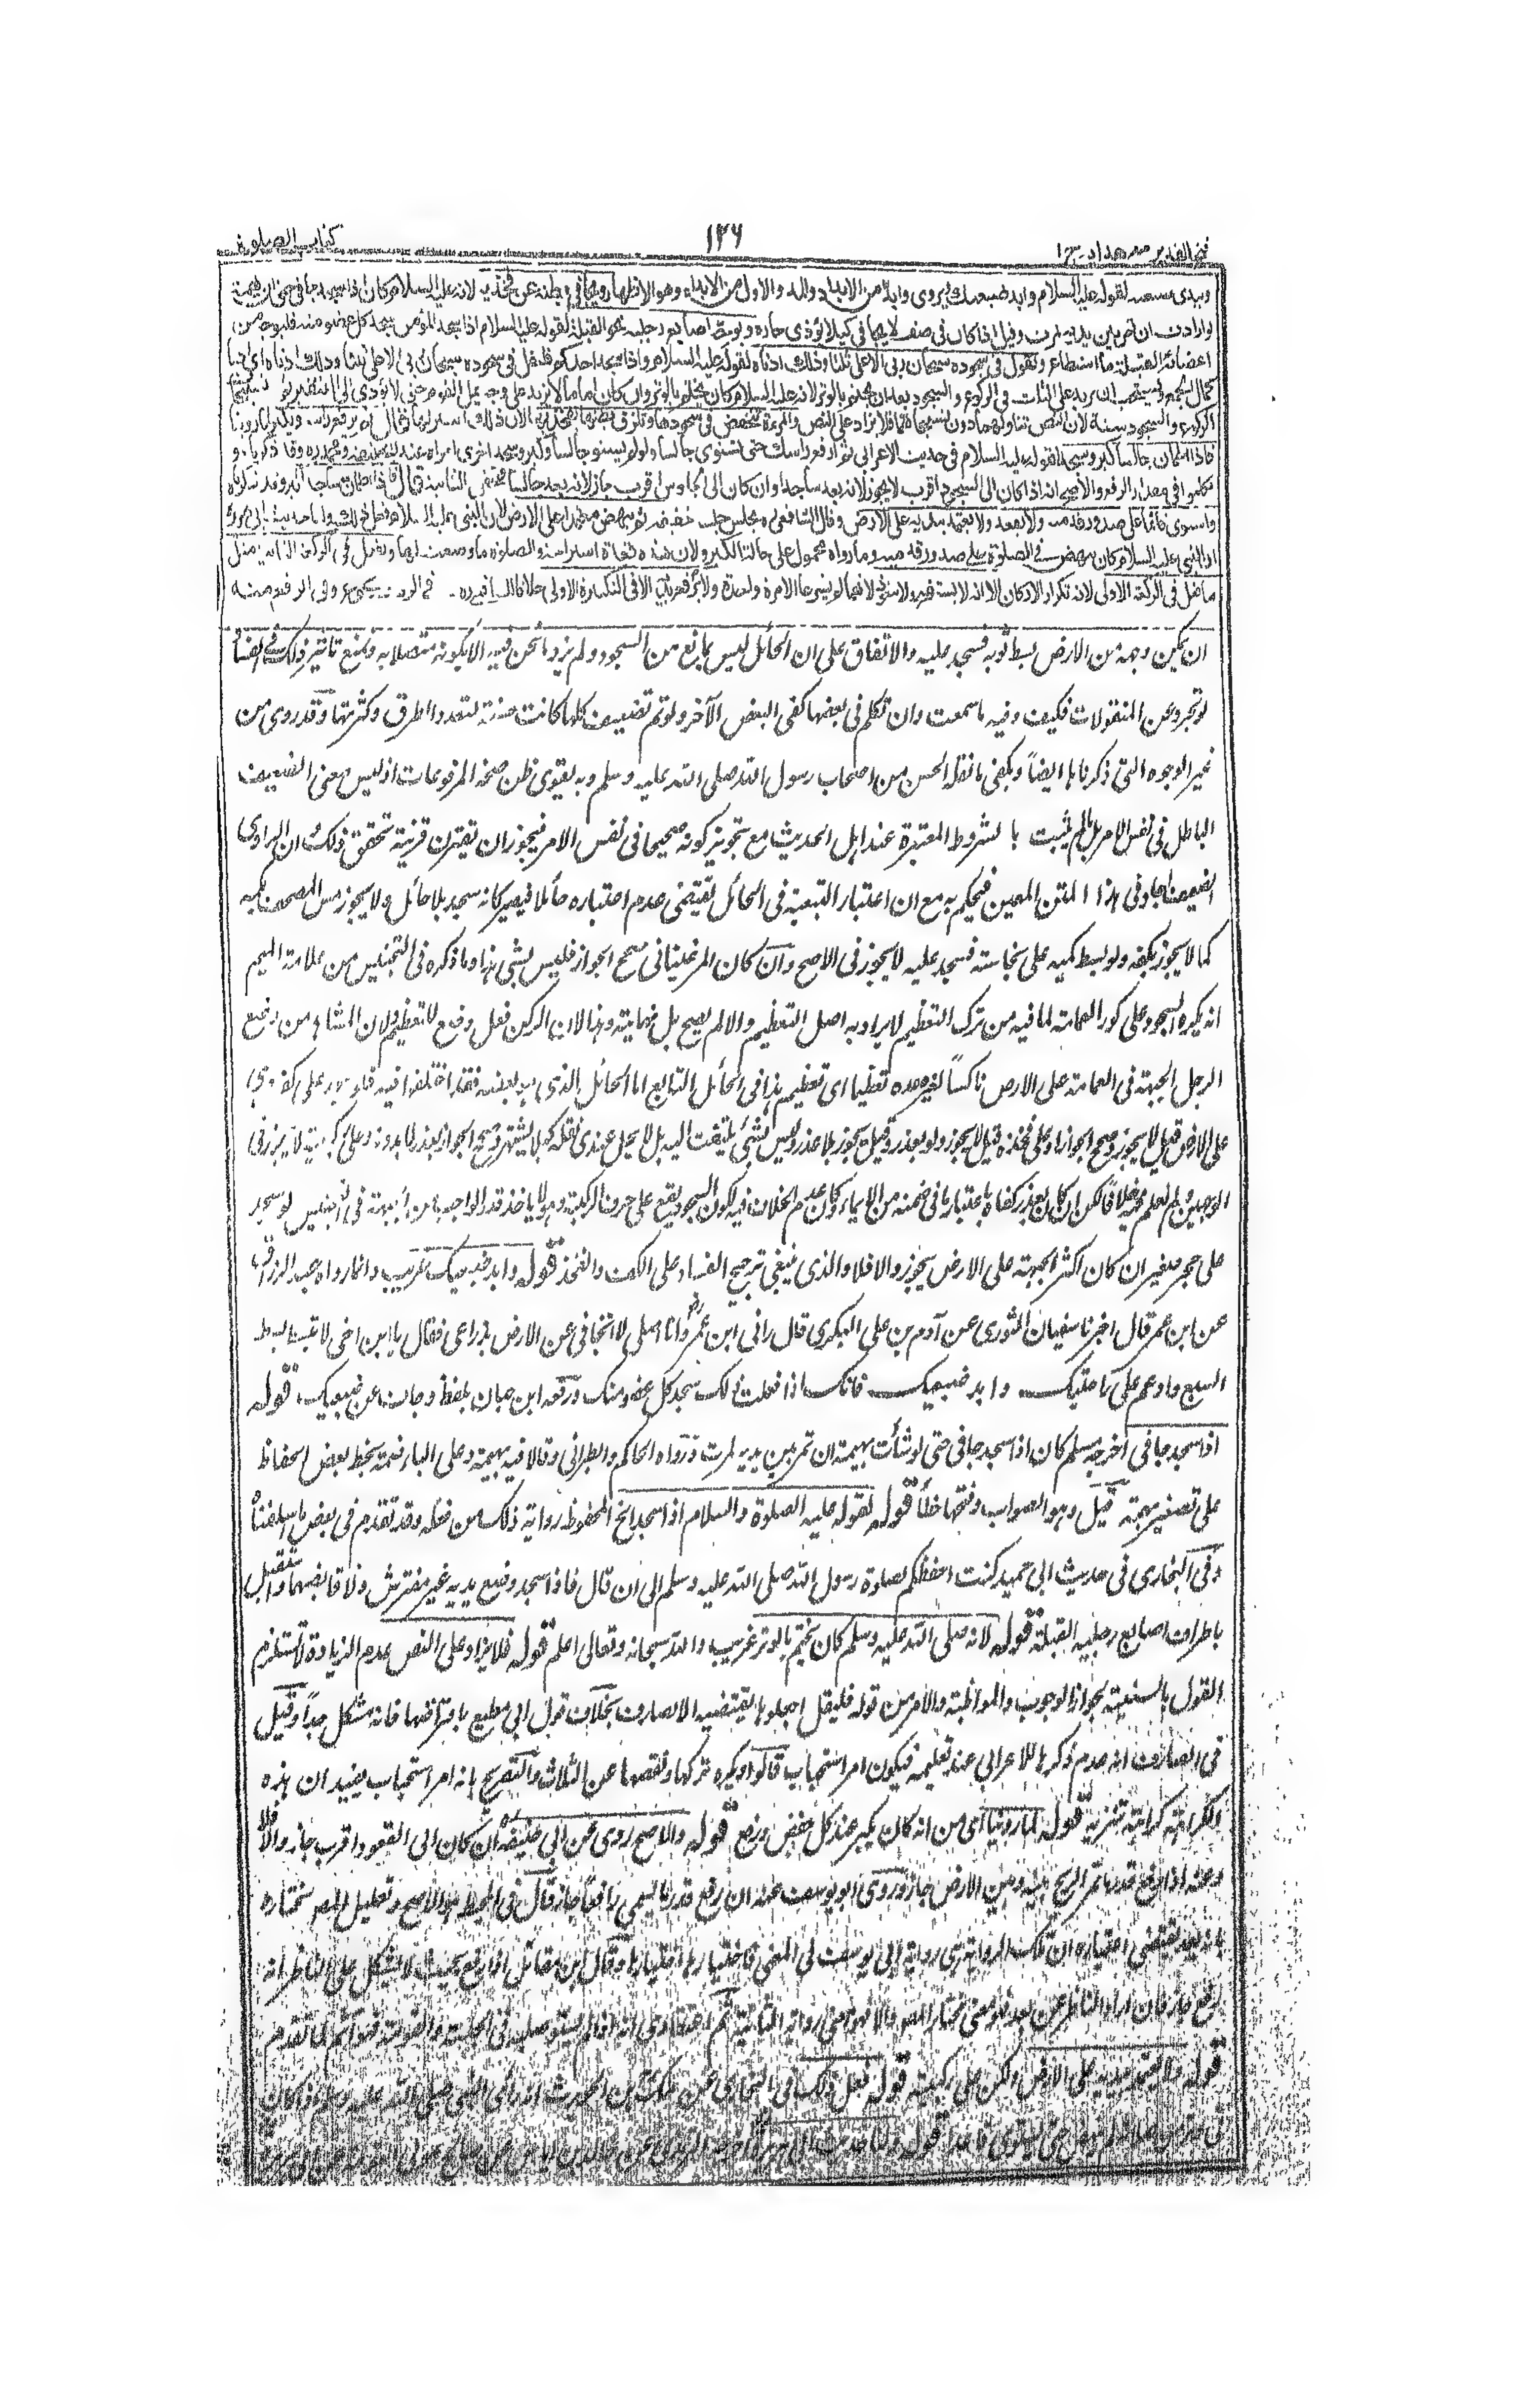 فتح القدير مع هداية ج ١
١٢٦
كتاب الصلوة
ويبدي ضبعيه لقوله عليه السلام وابد ضبعيك ويروى وابد من الابداد وهو المد والاول من الابداء وهو الاظهار ويجافي بطنه عن فخذيه لانه عليه السلام كان اذا سجد جافى حتى ان بهمة
لو ارادت ان تمر بين يديه لمرت وقيل اذا كان في صف لا يجافي كيلا يؤذي جاره ويوجه اصابع رجليه نحو القبلة لقوله عليه السلام اذا سجد المؤمن سجد كل عضو منه فليوجه من
اعضائه القبلة ما استطاع ويقول في سجوده سبحان ربي الاعلى ثلثا وذلك ادناه لقوله عليه السلام واذا سجد احدكم فليقل في سجوده سبحان ربي الاعلى ثلثا وذلك ادناه اي ادنى
كمال الجمع ويستحب ان يزيد على الثلث في الركوع والسجود بعد ان يختم بالوتر لانه عليه السلام كان يختم بالوتر وان كان اماما لا يزيد على وجه يمل القوم حتى لا يؤدي الى التنفير ثم تسبيحات
الركوع والسجود سنة لان النص تناولهما دون تسبيحاتهما فلا يزاد على النص والمرءة تنخفض في سجودها وتلزق بطنها بفخذيها لان ذلك استر لها قال ثم يرفع راسه ويكبر لما روينا
فاذا اطمأن جالسا كبر وسجد لقوله عليه السلام في حديث الاعرابي ثم ارفع راسك حتى تستوي جالسا ولو لم يستو جالسا وكبر وسجد اخرى اجزاه عند ابي حنيفة ومحمد وقد ذكرناه و
تكلموا في مقدار الرفع والاصح انه اذا كان الى السجود اقرب لا يجوز لانه يعد ساجدا وان كان الى الجلوس اقرب جاز لانه يعد جالسا فتحقق الثانية قال فاذا اطمأن ساجدا كبر وقد ذكرناه
واستوى قائما على صدور قدميه ولا يقعد ولا يعتمد بيديه على الارض وقال الشافعي يجلس جلسة خفيفة ثم ينهض معتمدا على الارض لان النبي عليه السلام فعل ذلك ولنا حديث ابي هريرة
ان النبي عليه السلام كان ينهض في الصلوة على صدور قدميه وما رواه محمول على حالة الكبر ولان هذه قعدة استراحة والصلوة ما وضعت لها ويفعل في الركعة الثانية مثل
ما فعل في الركعة الاولى لانه تكرار الاركان الا انه لا يستفتح ولا يتعوذ لانهما لم يشرعا الا مرة واحدة ولا يرفع يديه الا في التكبيرة الاولى خلافا للشافعي في الركوع وفي الرفع منه
ان يمكن وجهه من الارض بسط ثوبه فسجد عليه والاتفاق على ان الحائل ليس بمانع من السجود ولم يزد ما نحن فيه الا بكونه متصلا به ويمنع تاثير ذلك في الفساد
لو تجرد عن المنقولات فكيف وفيه ما سمعت وان تكلم في بعضها كفى البعض الآخر ولو تم تضعيف كلها كانت حسنة لتعدد الطرق وكثرتها وقد روى من
غير الوجوه التي ذكرناها ايضا ويكفي ما نقله الحسن من اصحاب رسول الله صلى الله عليه وسلم وبه يقوى ظن صحة المرفوعات اذ ليس معنى الضعيف
الباطل في نفس الامر بل ما لم يثبت بالشروط المعتبرة عند اهل الحديث مع تجويز كونه صحيحا في نفس الامر فيجوز ان تقترن قرينة تحقق ذلك وان الراوي
الضعيف اجاد في هذا المتن المعين فيحكم به مع ان اعتبار التبعية في الحائل يقتضي عدم اعتباره حائلا فيصير كانه سجد بلا حائل ولا يجوز مس المصحف بكمه
كما لا يجوز بكفه ولو بسط كمه على نجاسة فسجد عليه لا يجوز في الاصح وان كان المرغيناني صحح الجواز فليس بشي هذا وما ذكره في التجنيس من علامة الميم
انه يكره السجود على كور العمامة لما فيه من ترك التعظيم لا يراد به اصل التعظيم والا لم يصح بل نهايته وهذا لان الركن فعل وضع للتعظيم ولان المشاهد من وضع
الرجل الجبهة في العمامة على الارض ناكسا لغيره عده تعظيما اي تعظيم هذا في الحائل التابع اما الحائل الذي هو بعضه فقد اختلفوا فيه فلو سجد على كفه وهي
على الارض قيل لا يجوز وصحح الجواز او على فخذه قيل لا يجوز ولو بعذر وقيل يجوز بلا عذر وليس بشي يلتفت اليه بل لا يحل عندي نقله كيلا يشتهر وصحح الجواز بعذر لا بدونه وعلى ركبتيه لا يجوز في
الوجهين ولم نعلم فيه خلافا لكن ان كان بعذر كفاه باعتبار ما في ضمنه من الايماء وكان عدم الخلاف فيه لكون السجود يقع على حرف الركبة وهو لا ياخذ قدر الواجب من الجبهة في التجنيس لو سجد
على حجر صغير ان كان اكثر الجبهة على الارض يجوز والا فلا والذي ينبغي ترجيح الفساد على الكف والفخذ قوله وابد ضبعيك غريب وانما رواه عبد الرزاق
عن ابن عمر قال اخبرنا سفيان الثوري عن آدم بن علي البكري قال راني ابن عمر وانا اصلي لا اتجافى عن الارض بذراعي فقال يا ابن اخي لا تبسط بسط
السبع وادعم على راحتيك وابد ضبعيك فانك اذا فعلت ذلك سجد كل عضو منك ورفعه ابن حبان بلفظ وجاف عن ضبعيك قوله
اذا سجد جافى اخرجه مسلم كان اذا سجد جافى حتى لو شأت بهيمة ان تمر بين يديه لمرت ورواه الحاكم والطبراني وقالا فيه بهيمة وعلى الباء ضمة بخط بعض الحفاظ
على تصغير بهمة قيل وهو الصواب وفتحها خطأ قوله لقوله عليه الصلوة والسلام اذا سجد الخ المحفوظ رواية ذلك من فعله وقد تقدم في بعض ما سلفنا
وفي البخاري في حديث ابي حميد كنت احفظكم لصلوة رسول الله صلى الله عليه وسلم الى ان قال فاذا سجد وضع يديه غير مفترش ولا قابضهما واستقبل
باطراف اصابع رجليه القبلة قوله لانه صلى الله عليه وسلم كان يختم بالوتر غريب والله سبحانه وتعالى اعلم قوله فلا يزاد على النص عدم الزيادة لا تستلزم
القول بالسنية بجواز الوجوب والمواظبة والامر من قوله فليقل اجعلوها يقتضيه الا لصارف بخلاف قول ابي مطيع بافتراضها فانه مشكل جدا وقيل
في الصارف انه عدم ذكرها للاعرابي عند تعليمه فيكون امر استحباب قالوا ويكره تركها ونقصها عن الثلاث والتصريح بانه امر استحباب يفيد ان هذه
الكراهة كراهة تنزيه قوله لما روينا اي من انه كان يكبر عند كل خفض ورفع قوله والاصح روى عن ابي حنيفة ان كان الى القعود اقرب جاز والا فلا
وعنه اذا رفع قدر ما تمر الريح بينه وبين الارض جاز وروى ابو يوسف عنه ان رفع قدر ما يسمى رافعا جاز قال في المحيط هو الاصح وتعليل المصـ مختاره
بانه يعد يقتضي اختياره ان تلك الرواية هي رواية ابي يوسف
قوله ولا يعتمد بيديه على الارض ولكن على ركبتيه قوله فعل ذلك في البخاري عن مالك بن الحويرث انه رأى النبي صلى الله عليه وسلم اذا كان